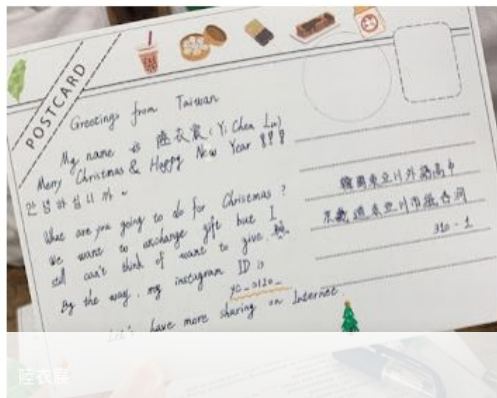 POSTCARD
Greetings from Taiwan
My name is 陸衣宸 (Yi Chen Lu)
Merry Christmas & Happy New Year !!!
안녕하십니까~
What are you going to do for Christmas ?
We want to exchange gift but I
still can't think of want to give.
By the way, my instagram ID is
yc_0120_
Let's have more sharing on Internet
韓國東豆川外語高中
京畿道東豆川市
310-1
陸衣宸